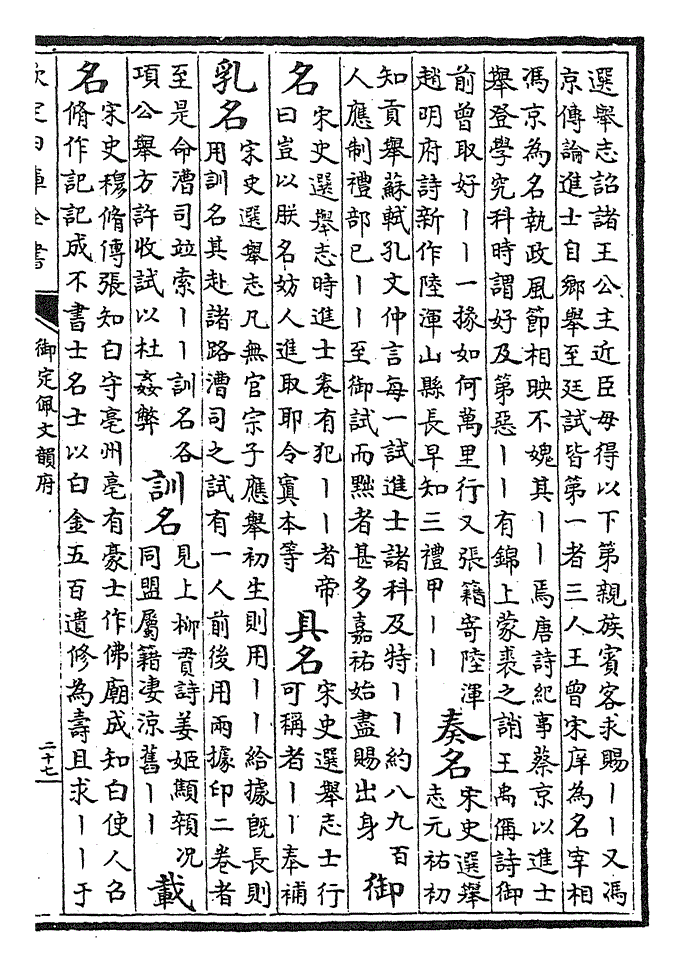 選舉志詔諸王公主近臣毋得以下第親族賓客求賜丨丨又馮
京傳論進士自鄉舉至廷試皆第一者三人王曾宋庠為名宰相
馮京為名執政風節相映不媿其丨丨焉唐詩紀事蔡京以進士
舉登學究科時謂好及第惡丨丨有錦上蒙裘之誚王禹偁詩御
前曾取好丨丨一掾如何萬里行又張籍寄陸渾
趙明府詩新作陸渾山縣長早知三禮甲丨丨
奏名
宋史選舉
志元祐初
知貢舉蘇軾孔文仲言每一試進士諸科及特丨丨約八九百
人應制禮部已丨丨至御試而黜者甚多嘉祐始盡賜出身
御
名
宋史選舉志時進士卷有犯丨丨者帝
曰豈以朕名妨人進取耶令寘本等
具名
宋史選舉志士行
可稱者丨丨奉補
乳名
宋史選舉志凡無官宗子應舉初生則用丨丨給據既長則
用訓名其赴諸路漕司之試有一人前後用兩據印二卷者
至是命漕司竝索丨丨訓名各
項公舉方許收試以杜姦弊
訓名
見上柳貫詩姜姬顯况
同盟屬籍凄涼舊丨丨
載
名
宋史穆脩傳張知白守亳州亳有豪士作佛廟成知白使人召
脩作記記成不書士名士以白金五百遺修為壽且求丨丨于
欽定四庫全書
御定佩文韻府
二十七